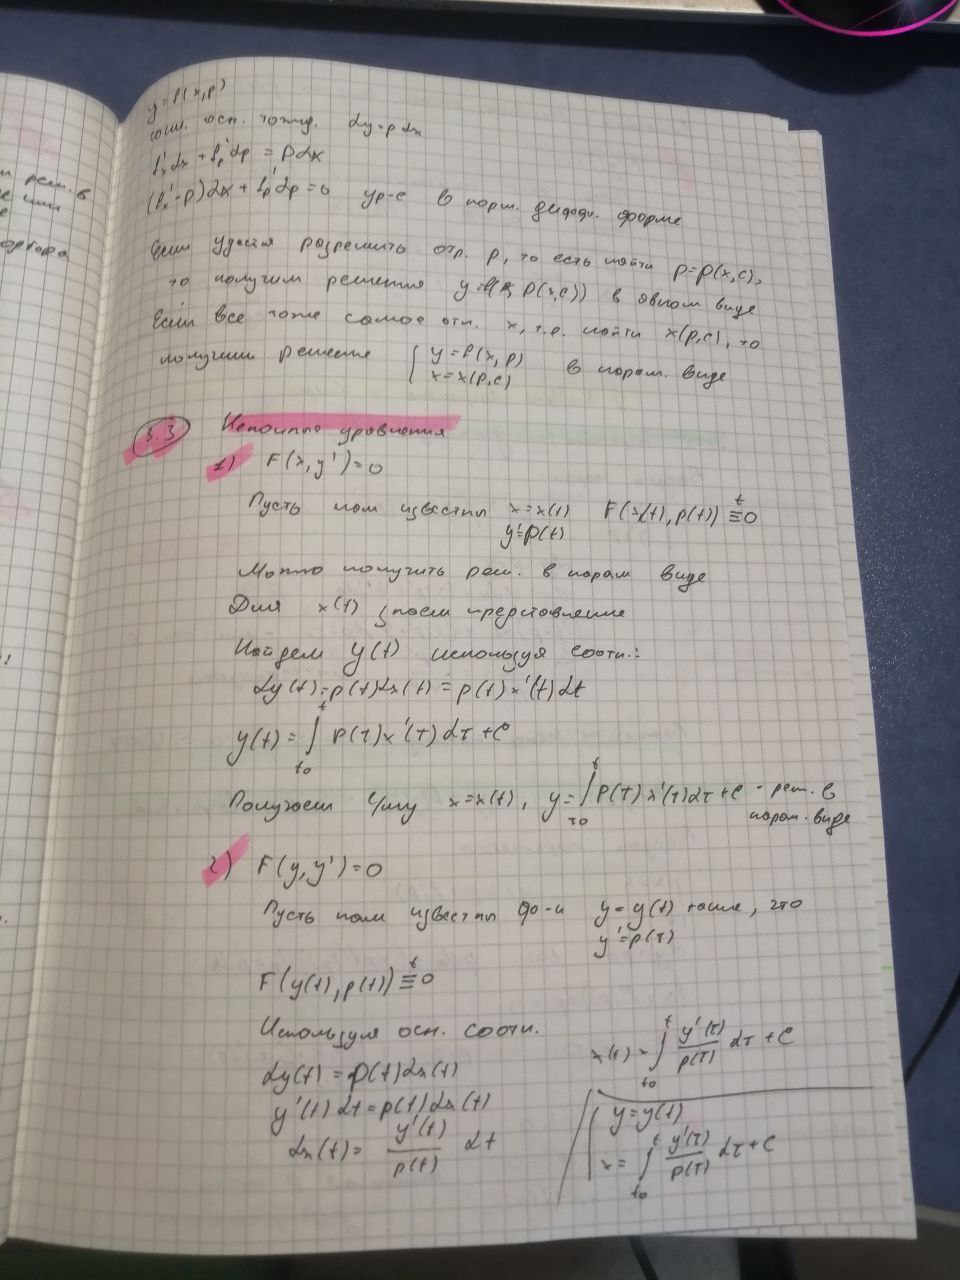 y = f(x,p)
осн. тожд. dy = p dx
f'ₓdx + f'ₚdp = pdx
(f'ₓ - p)dx + f'ₚdp = 0 ур-е в норм. дифф. форме
Если удастся разрешить отн. p, то есть найти p=p(x,c),
то получим решения y=f(x, p(x,c)) в явном виде
Если все тоже самое отн. x, т.е. найти x(p,c), то
получим решение { y = f(x,p)
x = x(p,c) в парам. виде
3.3 Неполные уравнения
1) F(x,y')=0
Пусть нам известны x=x(t) F(x(t),p(t)) ≡ᵗ 0
y'=p(t)
Можно получить реш. в парам виде
Для x(t) знаем представление
Найдем y(t) используя соотн.:
dy(t)=p(t)dx(t) = p(t)x'(t)dt
y(t) = ∫ₜ₀ᵗ p(τ)x'(τ)dτ + C
Получаем x=x(t), y=∫ₜ₀ᵗ p(τ)x'(τ)dτ+C - реш. в
парам. виде
2) F(y,y')=0
Пусть нам известны ф-и y=y(t) такие, что
y'=p(t)
F(y(t),p(t)) ≡ᵗ 0
Используя осн. соотн.
dy(t) = p(t)dx(t)
y'(t)dt = p(t)dx(t)
dx(t) = y'(t)/p(t) dt
x(t) = ∫ₜ₀ᵗ y'(τ)/p(τ) dτ + C
{ y = y(t)
x = ∫ₜ₀ᵗ y'(τ)/p(τ) dτ + C